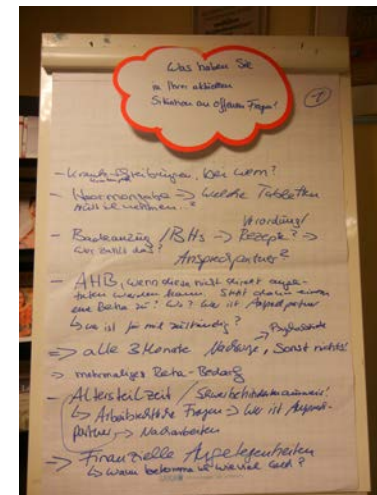 Was haben Sie
in Ihrer aktuellen
Situation an offenen Fragen?
1
- Krankschreibungen, bei wem?
- => Welche Tabletten
muss ich nehmen..?
Verordnung/
- Badeanzug / BHs -> Rezepte? ->
wer zahlt das?
Ansprechpartner?
- AHB, wenn diese nicht direkt ange-
treten werden kann. Steht dann einem
eine Reha zu? Wo? Wer ist Ansprechpartner
↳ wer ist für mich zuständig?
=> alle 3 Monate Nachsorge, Sonst nichts!
=> mehrmaliges Reha-Bedarf
- Altersteilzeit / Schwerbehindertenausweis!
↳ Arbeitsrechtliche Fragen -> Wer ist Ansprech-
partner -> Nacharbeiten
-> Finanzielle Angelegenheiten
↳ wann bekomme ich wieviel Geld?